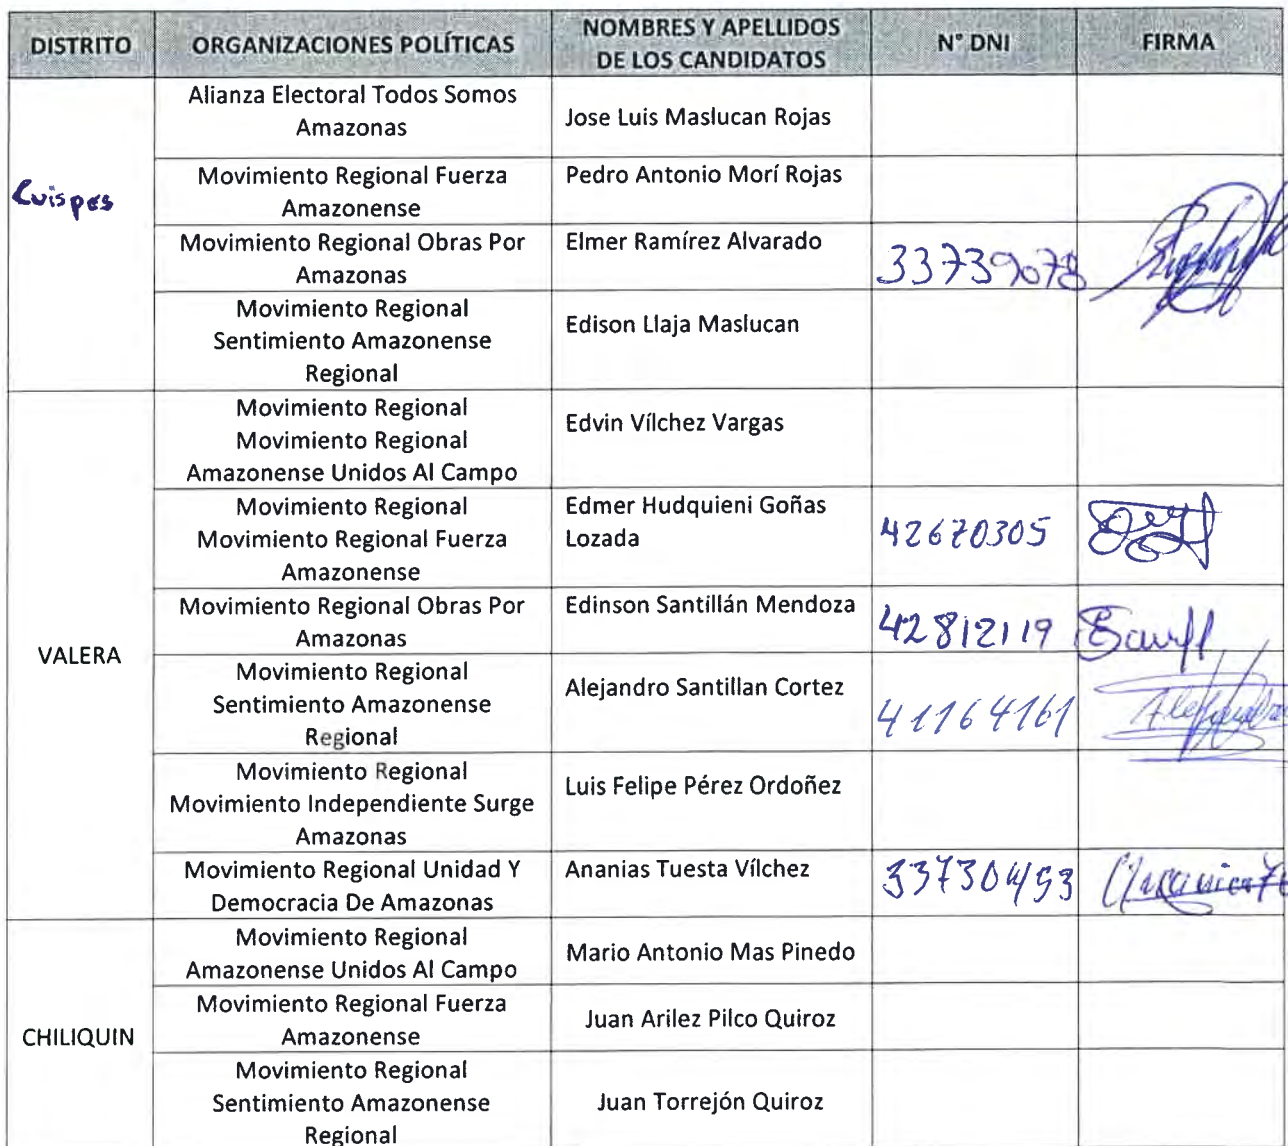 DISTRITO ORGANIZACIONES POLÍTICAS NOMBRES Y APELLIDOS DE LOS CANDIDATOS N° DNI FIRMA
Cuispes
Alianza Electoral Todos Somos
Amazonas
Jose Luis Maslucan Rojas
Movimiento Regional Fuerza
Amazonense
Pedro Antonio Morí Rojas
Movimiento Regional Obras Por
Amazonas
Elmer Ramírez Alvarado
33739078
Movimiento Regional
Sentimiento Amazonense
Regional
Edison Llaja Maslucan
VALERA
Movimiento Regional
Movimiento Regional
Amazonense Unidos Al Campo
Edvin Vílchez Vargas
Movimiento Regional
Movimiento Regional Fuerza
Amazonense
Edmer Hudquieni Goñas
Lozada
42670305
Movimiento Regional Obras Por
Amazonas
Edinson Santillán Mendoza
42812119
Movimiento Regional
Sentimiento Amazonense
Regional
Alejandro Santillan Cortez
41164161
Movimiento Regional
Movimiento Independiente Surge
Amazonas
Luis Felipe Pérez Ordoñez
Movimiento Regional Unidad Y
Democracia De Amazonas
Ananias Tuesta Vílchez
33730453
CHILIQUIN
Movimiento Regional
Amazonense Unidos Al Campo
Mario Antonio Mas Pinedo
Movimiento Regional Fuerza
Amazonense
Juan Arilez Pilco Quiroz
Movimiento Regional
Sentimiento Amazonense
Regional
Juan Torrejón Quiroz